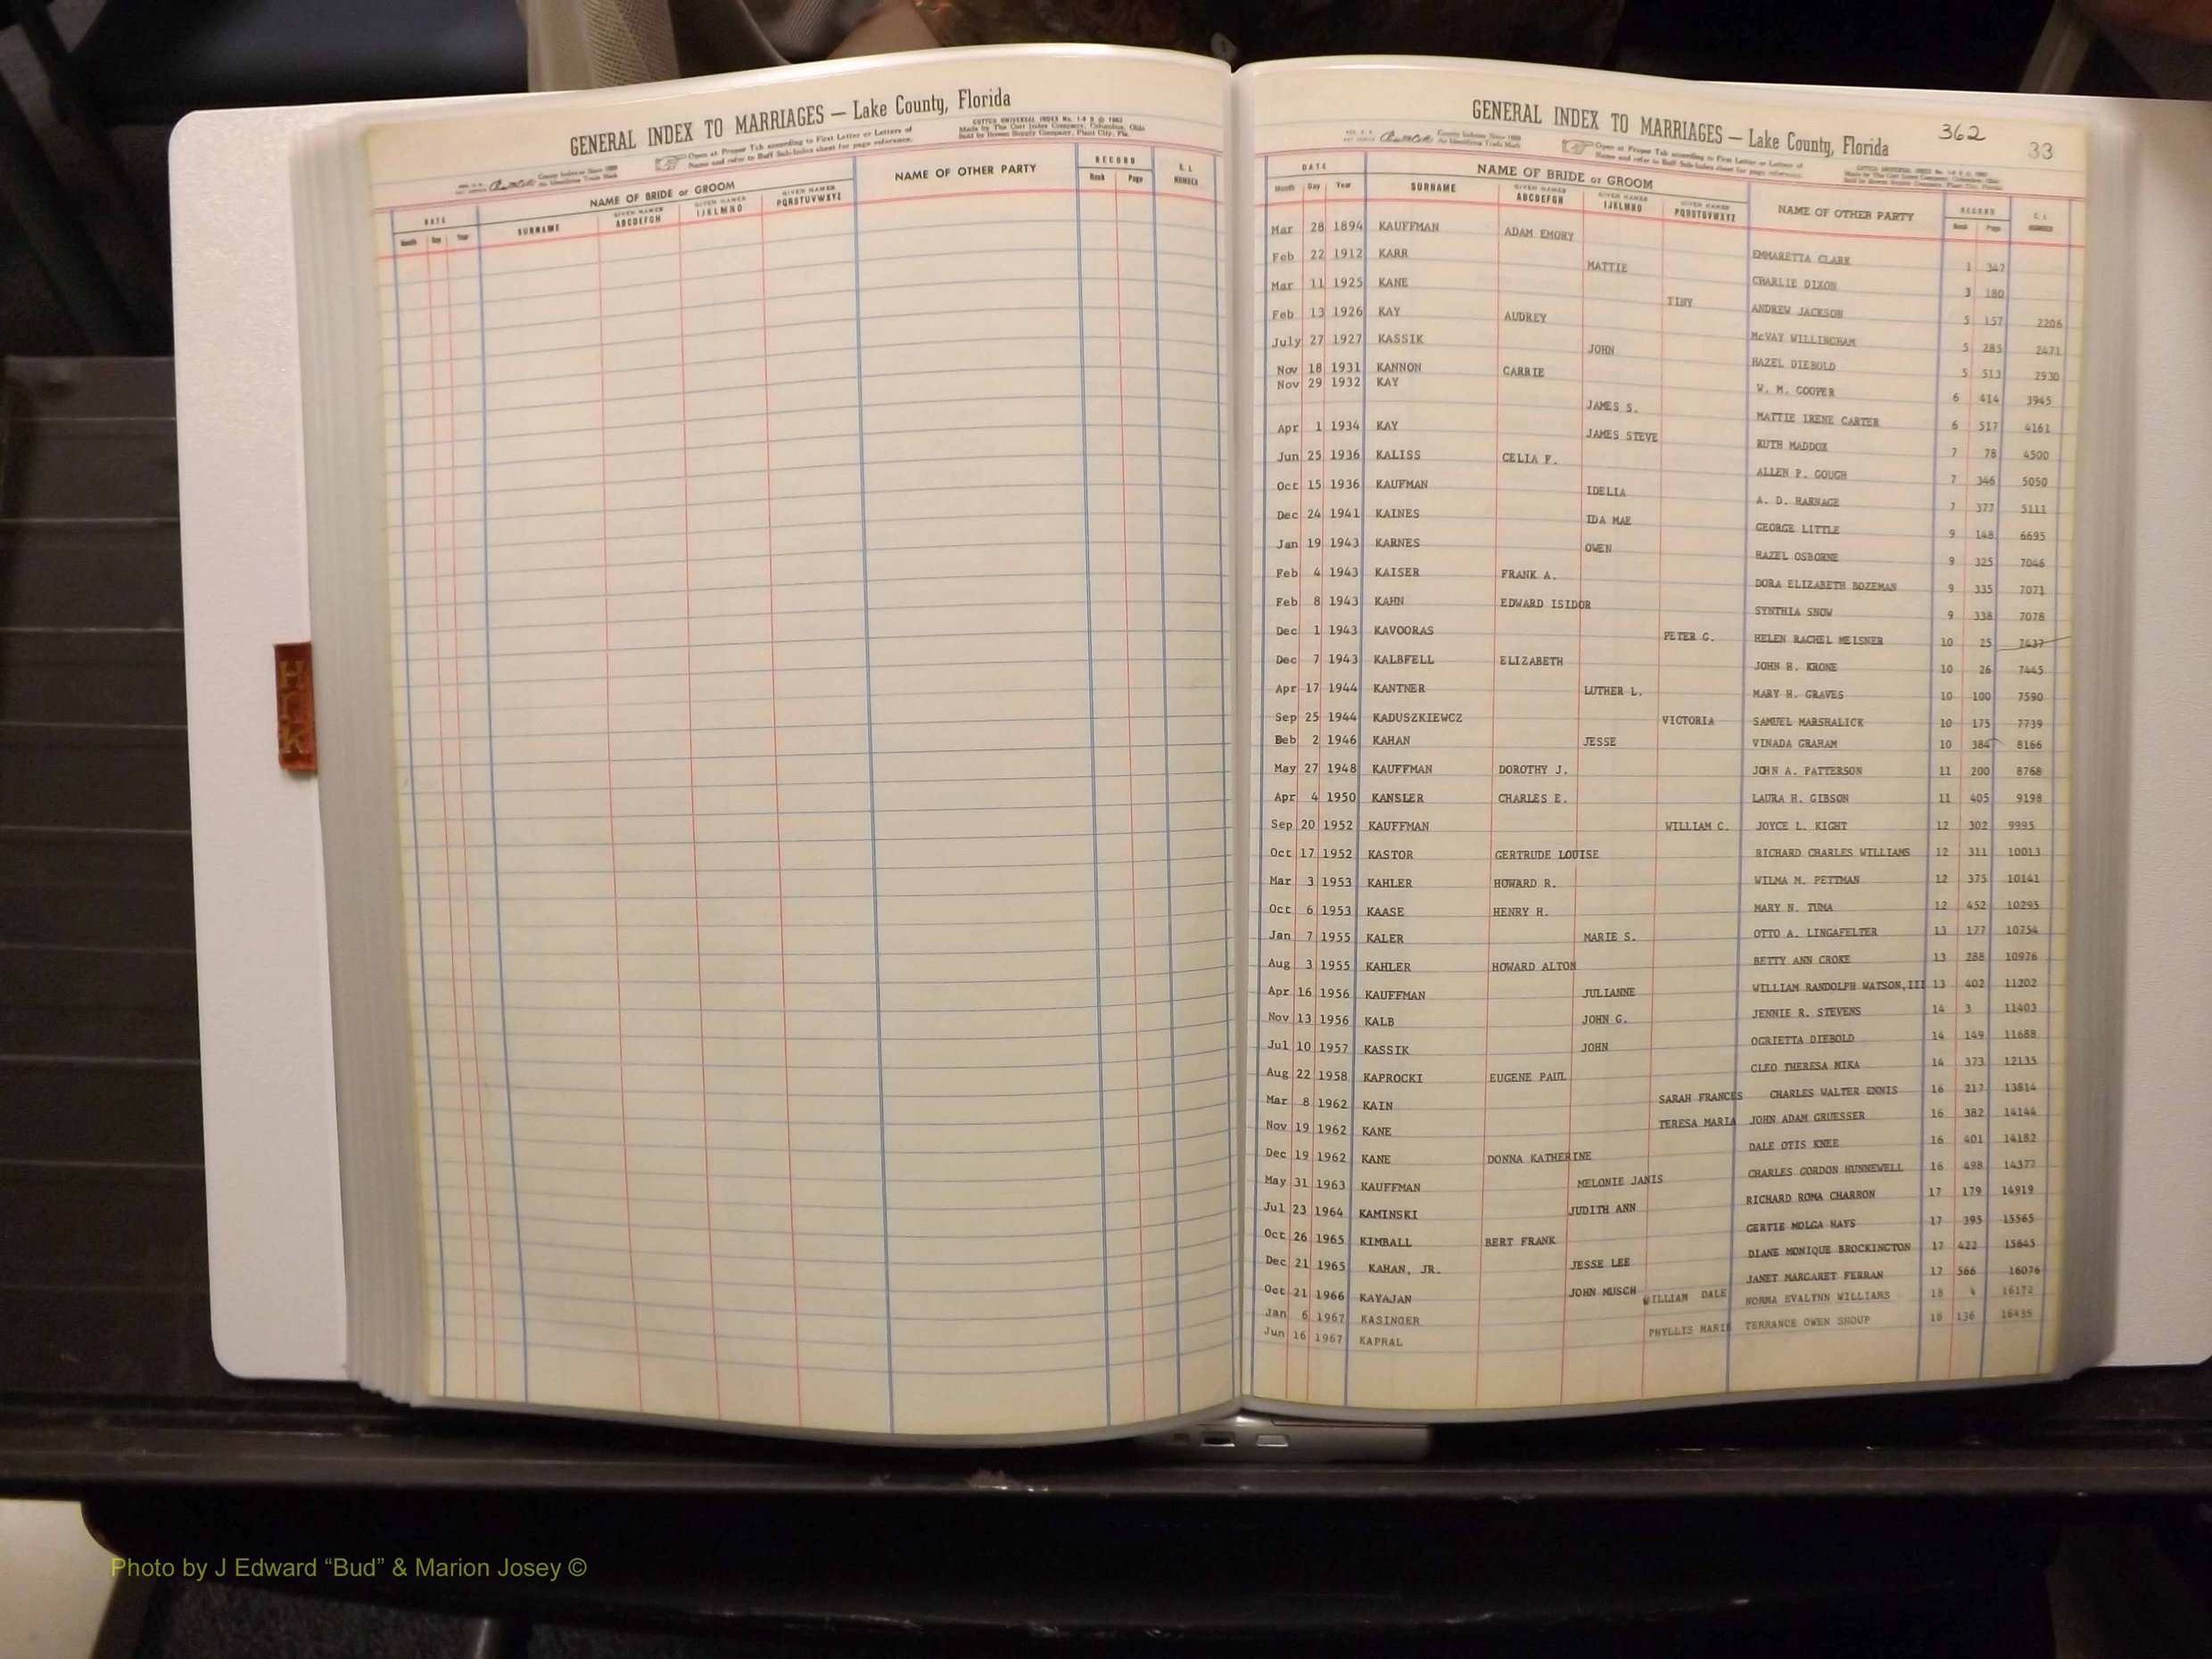 GENERAL INDEX TO MARRIAGES — Lake County, Florida
COTTCO UNIVERSAL INDEX No. 1-6 B © 1962
Made by The Cott Index Company, Columbus, Ohio
Sold by Bowen Supply Company, Plant City, Fla.
County Indexes Since 1888
An Identifying Trade Mark
Open at Proper Tab according to First Letter or Letters of
Name and refer to Buff Sub-Index sheet for page reference.
DATE NAME OF BRIDE or GROOM NAME OF OTHER PARTY RECORD C. I. NUMBER
Month Day Year SURNAME GIVEN NAMES ABCDEFGH GIVEN NAMES IJKLMNO GIVEN NAMES PQRSTUVWXYZ Book Page
HIJK
GENERAL INDEX TO MARRIAGES — Lake County, Florida 362 33
County Indexes Since 1888
An Identifying Trade Mark
Open at Proper Tab according to First Letter or Letters of
Name and refer to Buff Sub-Index sheet for page reference.
DATE NAME OF BRIDE or GROOM NAME OF OTHER PARTY RECORD C. I. NUMBER
Month Day Year SURNAME GIVEN NAMES ABCDEFGH GIVEN NAMES IJKLMNO GIVEN NAMES PQRSTUVWXYZ Book Page
Mar 28 1894 KAUFFMAN ADAM EMORY EMMARETTA CLARK 1 347
Feb 22 1912 KARR MATTIE CHARLIE DIXON 3 180
Mar 11 1925 KANE TINY ANDREW JACKSON 5 157 2206
Feb 13 1926 KAY AUDREY McVAY WILLINGHAM 5 285 2471
July 27 1927 KASSIK JOHN HAZEL DIEBOLD 5 513 2930
Nov 18 1931 KANNON CARRIE W. M. COOPER 6 414 3945
Nov 29 1932 KAY JAMES S. MATTIE IRENE CARTER 6 517 4161
Apr 1 1934 KAY JAMES STEVE RUTH MADDOX 7 78 4500
Jun 25 1936 KALISS CELIA F. ALLEN P. GOUGH 7 346 5050
Oct 15 1936 KAUFMAN IDELIA A. D. HARNAGE 7 377 5111
Dec 24 1941 KAINES IDA MAE GEORGE LITTLE 9 148 6695
Jan 19 1943 KARNES OWEN HAZEL OSBORNE 9 325 7046
Feb 4 1943 KAISER FRANK A. DORA ELIZABETH BOZEMAN 9 335 7071
Feb 8 1943 KAHN EDWARD ISIDOR SYNTHIA SNOW 9 338 7078
Dec 1 1943 KAVOORAS PETER G. HELEN RACHEL MEISNER 10 25 7437
Dec 7 1943 KALBFELL ELIZABETH JOHN H. KRONE 10 26 7445
Apr 17 1944 KANTNER LUTHER L. MARY H. GRAVES 10 100 7590
Sep 25 1944 KADUSZKIEWCZ VICTORIA SAMUEL MARSHALICK 10 175 7739
Beb 2 1946 KAHAN JESSE VINADA GRAHAM 10 384 8166
May 27 1948 KAUFFMAN DOROTHY J. JOHN A. PATTERSON 11 200 8768
Apr 4 1950 KANSLER CHARLES E. LAURA H. GIBSON 11 405 9198
Sep 20 1952 KAUFFMAN WILLIAM C. JOYCE L. KIGHT 12 302 9995
Oct 17 1952 KASTOR GERTRUDE LOUISE RICHARD CHARLES WILLIAMS 12 311 10013
Mar 3 1953 KAHLER HOWARD R. WILMA M. PETTMAN 12 375 10141
Oct 6 1953 KAASE HENRY H. MARY N. TUMA 12 452 10295
Jan 7 1955 KALER MARIE S. OTTO A. LINGAFELTER 13 177 10754
Aug 3 1955 KAHLER HOWARD ALTON BETTY ANN CROKE 13 288 10976
Apr 16 1956 KAUFFMAN JULIANNE WILLIAM RANDOLPH WATSON,III 13 402 11202
Nov 13 1956 KALB JOHN G. JENNIE R. STEVENS 14 3 11403
Jul 10 1957 KASSIK JOHN OGRIETTA DIEBOLD 14 149 11688
Aug 22 1958 KAPROCKI EUGENE PAUL CLEO THERESA MIKA 14 373 12135
Mar 8 1962 KAIN SARAH FRANCES CHARLES WALTER ENNIS 16 217 13814
Nov 19 1962 KANE TERESA MARIA JOHN ADAM GRUESSER 16 382 14144
Dec 19 1962 KANE DONNA KATHERINE DALE OTIS KNEE 16 401 14182
May 31 1963 KAUFFMAN MELONIE JANIS CHARLES GORDON HUNNEWELL 16 498 14377
Jul 23 1964 KAMINSKI JUDITH ANN RICHARD ROMA CHARRON 17 179 14919
Oct 26 1965 KIMBALL BERT FRANK GERTIE MOLGA HAYS 17 395 15565
Dec 21 1965 KAHAN, JR. JESSE LEE DIANE MONIQUE BROCKINGTON 17 422 15645
Oct 21 1966 KAYAJAN JOHN MUSCH JANET MARGARET FERRAN 17 566 16076
Jan 6 1967 KASINGER WILLIAM DALE NORMA EVALYNN WILLIAMS 18 4 16172
Jun 16 1967 KAPRAL PHYLLIS MARIE TERRANCE OWEN SHOUP 18 136 16435
Photo by J Edward “Bud” & Marion Josey ©